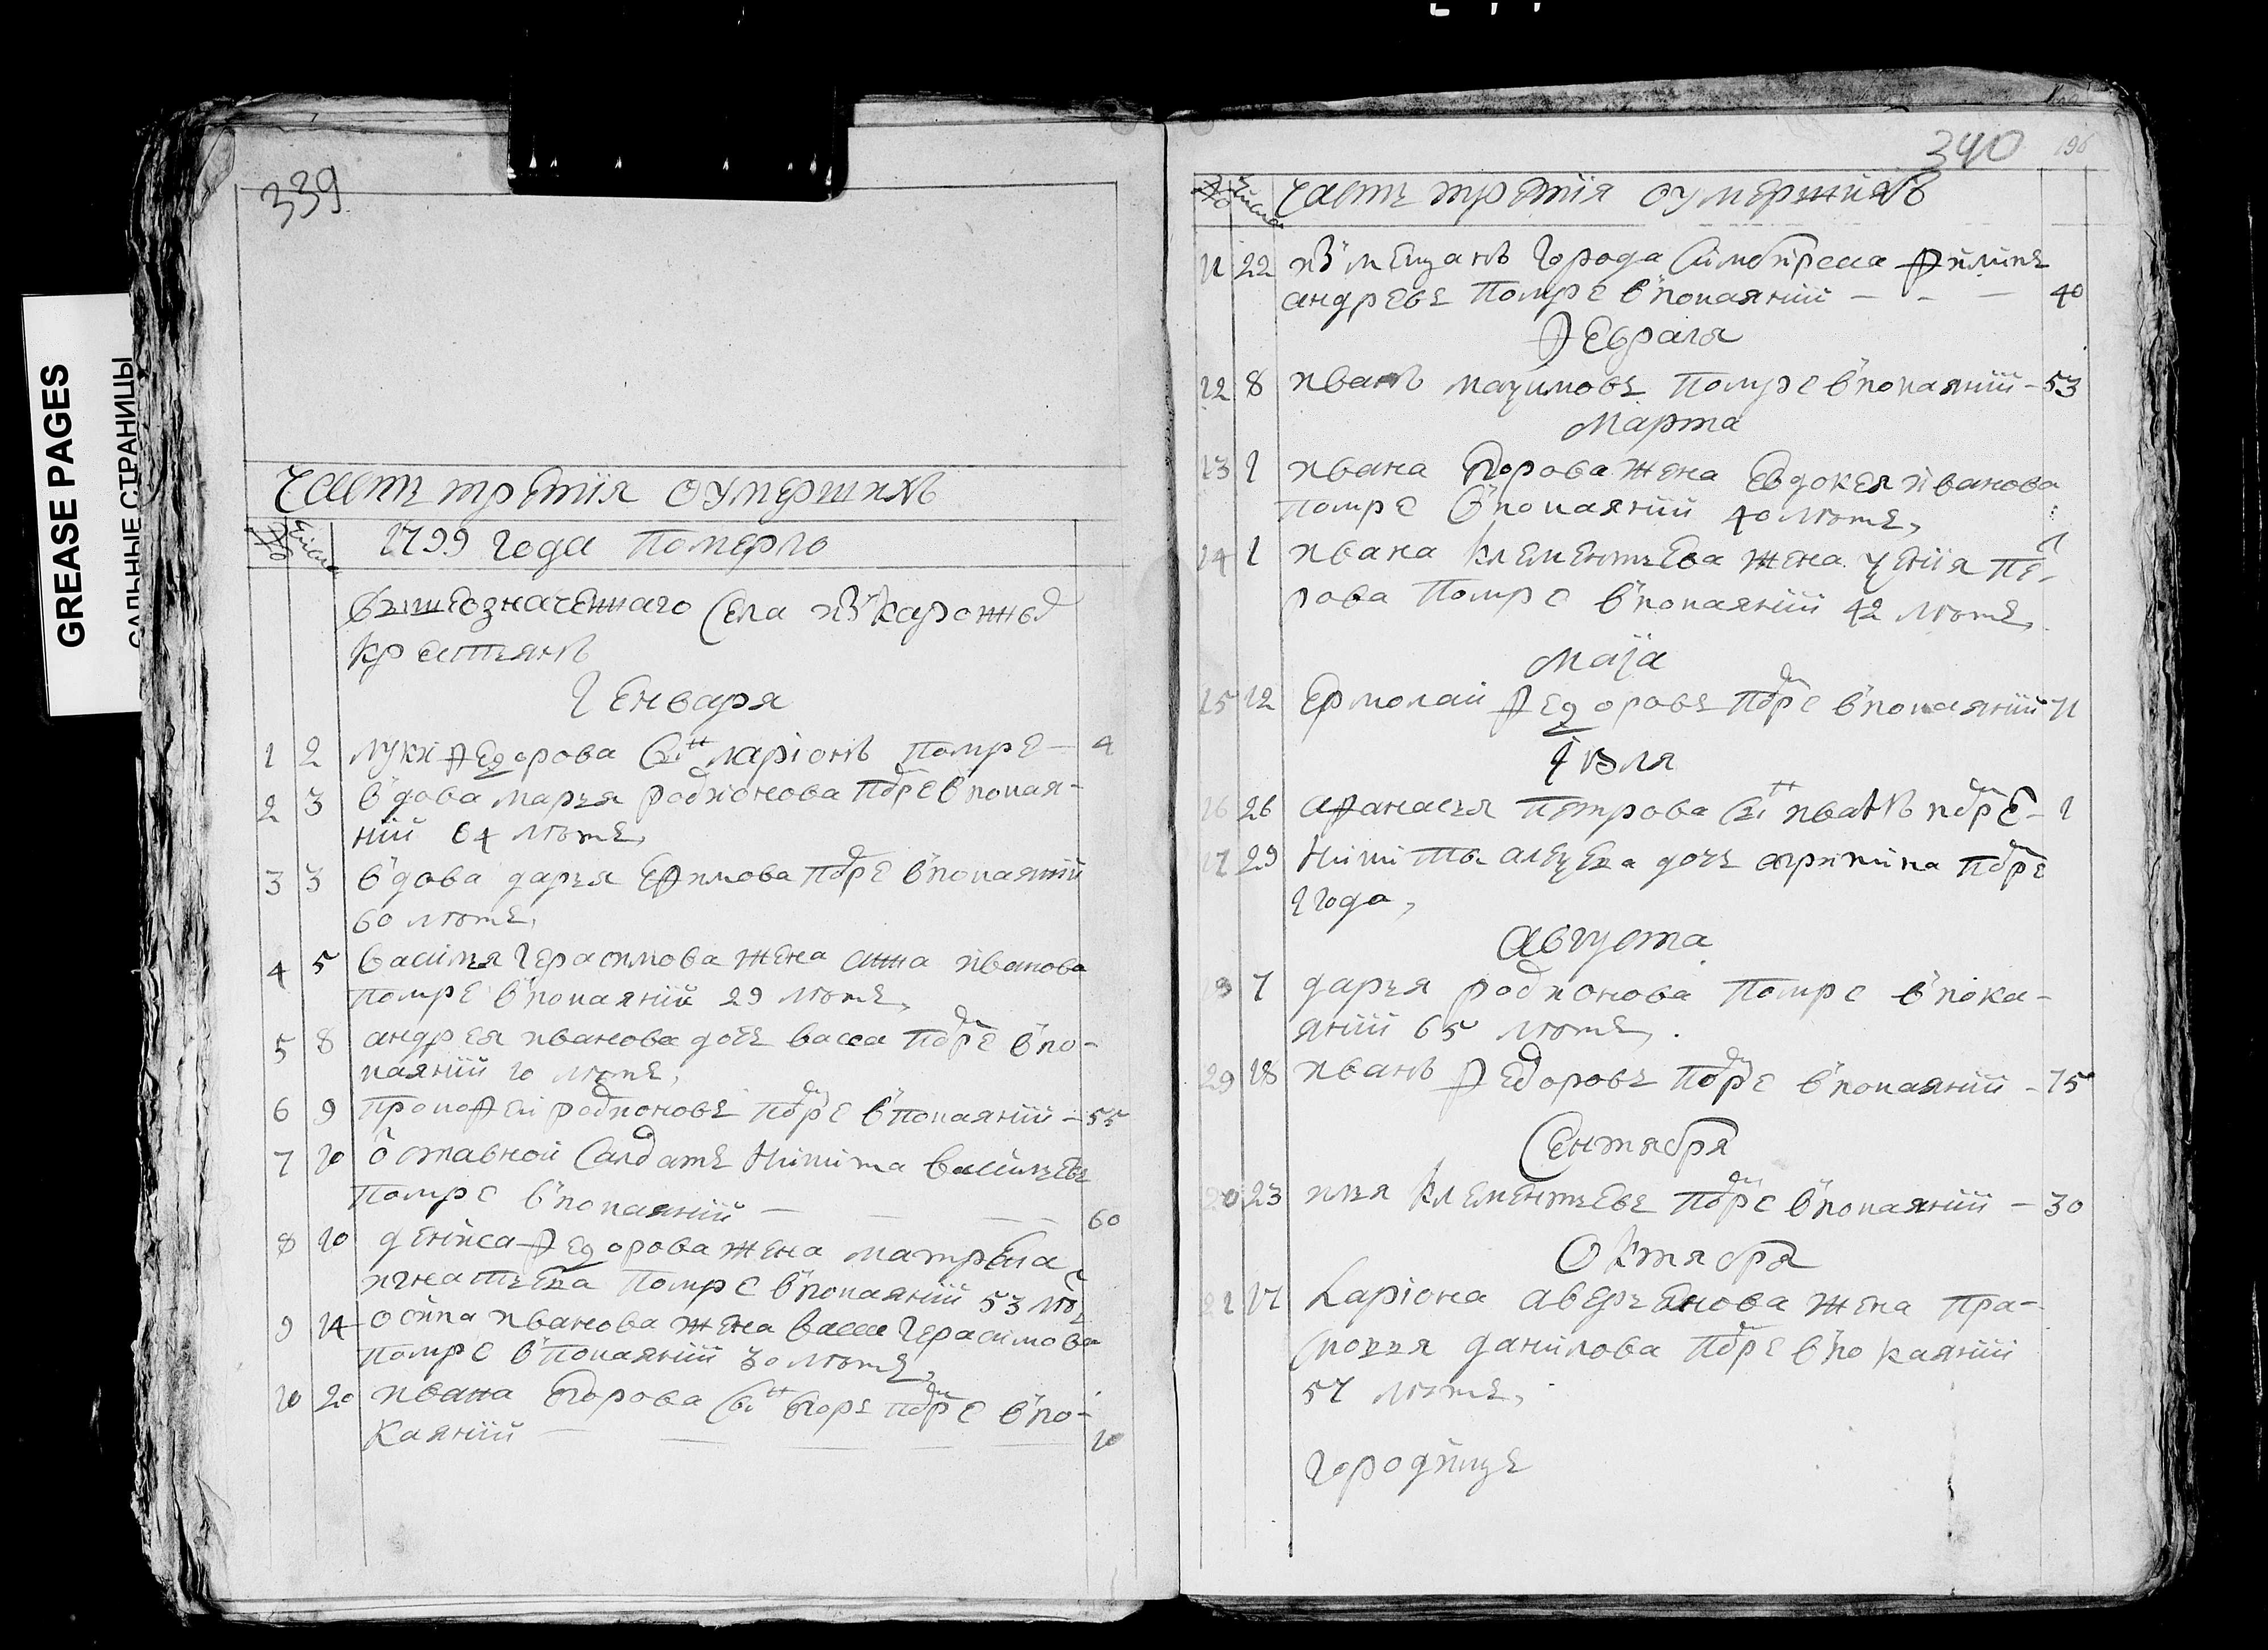 GREASE PAGES
САЛЬНЫЕ СТРАНИЦЫ
339
Часть третїя оумершихъ
№ Числа
1799 года померло
Вышеозначеннаго Села изъ казенныхъ
крестьянъ
Генваря
1 2 луки Федорова сынъ ларіонъ помре — 4
2 3 вдова марья родионова помре в покая-
нїи 64 лѣтъ,
3 3 вдова дарья Ефимова помре в покаянїи
60 лѣтъ,
4 5 василья герасимова жена анна иванова
помре в покаянїи 29 лѣтъ,
5 8 андрея иванова дочь васса помре в по-
каянїи 10 лѣтъ,
6 9 прокофей родионовъ помре в покаянїи — 55
7 10 ѿставной салдатъ никита васильевъ
помре в покаянїи — — — 60
8 10 дениса Федорова жена матрена
игнатьева помре в покаянїи 53 лѣ
9 14 осипа иванова жена васса герасимова
помре в покаянїи 30 лѣтъ,
10 20 ивана Егорова сынъ Егоръ помре в по-
каянїи — — — — 10
340
196
№ Числа
Часть третїя оумершихъ
11 22 изъ мещанъ города Симбирска Филипъ
андреевъ помре в покаянїи — - — 40
Февраля
12 8 иванъ мазимовъ помре в покаянїи — 53
Марта
13 1 ивана Егорова жена Евдокея иванова
помре в покаянїи 40 лѣтъ,
14 1 ивана клементьева жена пет-
рова помре в покаянїи 42 лѣтъ,
Маїа
15 12 Ермолаи Федоровъ помре в покаянїи 71
Іюля
16 26 афанасья петрова сынъ иванъ помре — 1
17 29 никиты алеѯеева дочь агрипина помре
1 года,
Августа
7 дарья родионова помре в пока-
янїи 65 лѣтъ,
18 иванъ Федоровъ помре в покаянїи — 75
Сентября
20 23 илья клементьевъ помре в покаянїи — 30
Октября
21 17 Ларіона аверьянова жена пра-
сковья данилова помре в покаянїи
57 лѣтъ,
городище